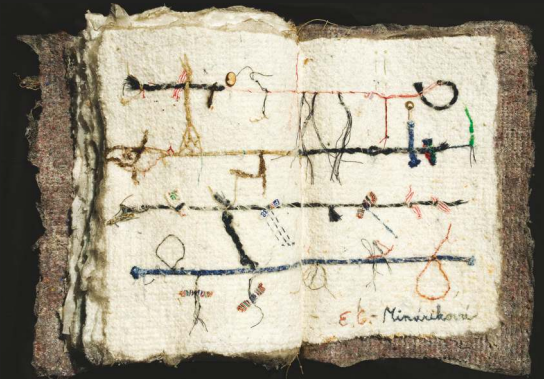 E. C. Mináriková